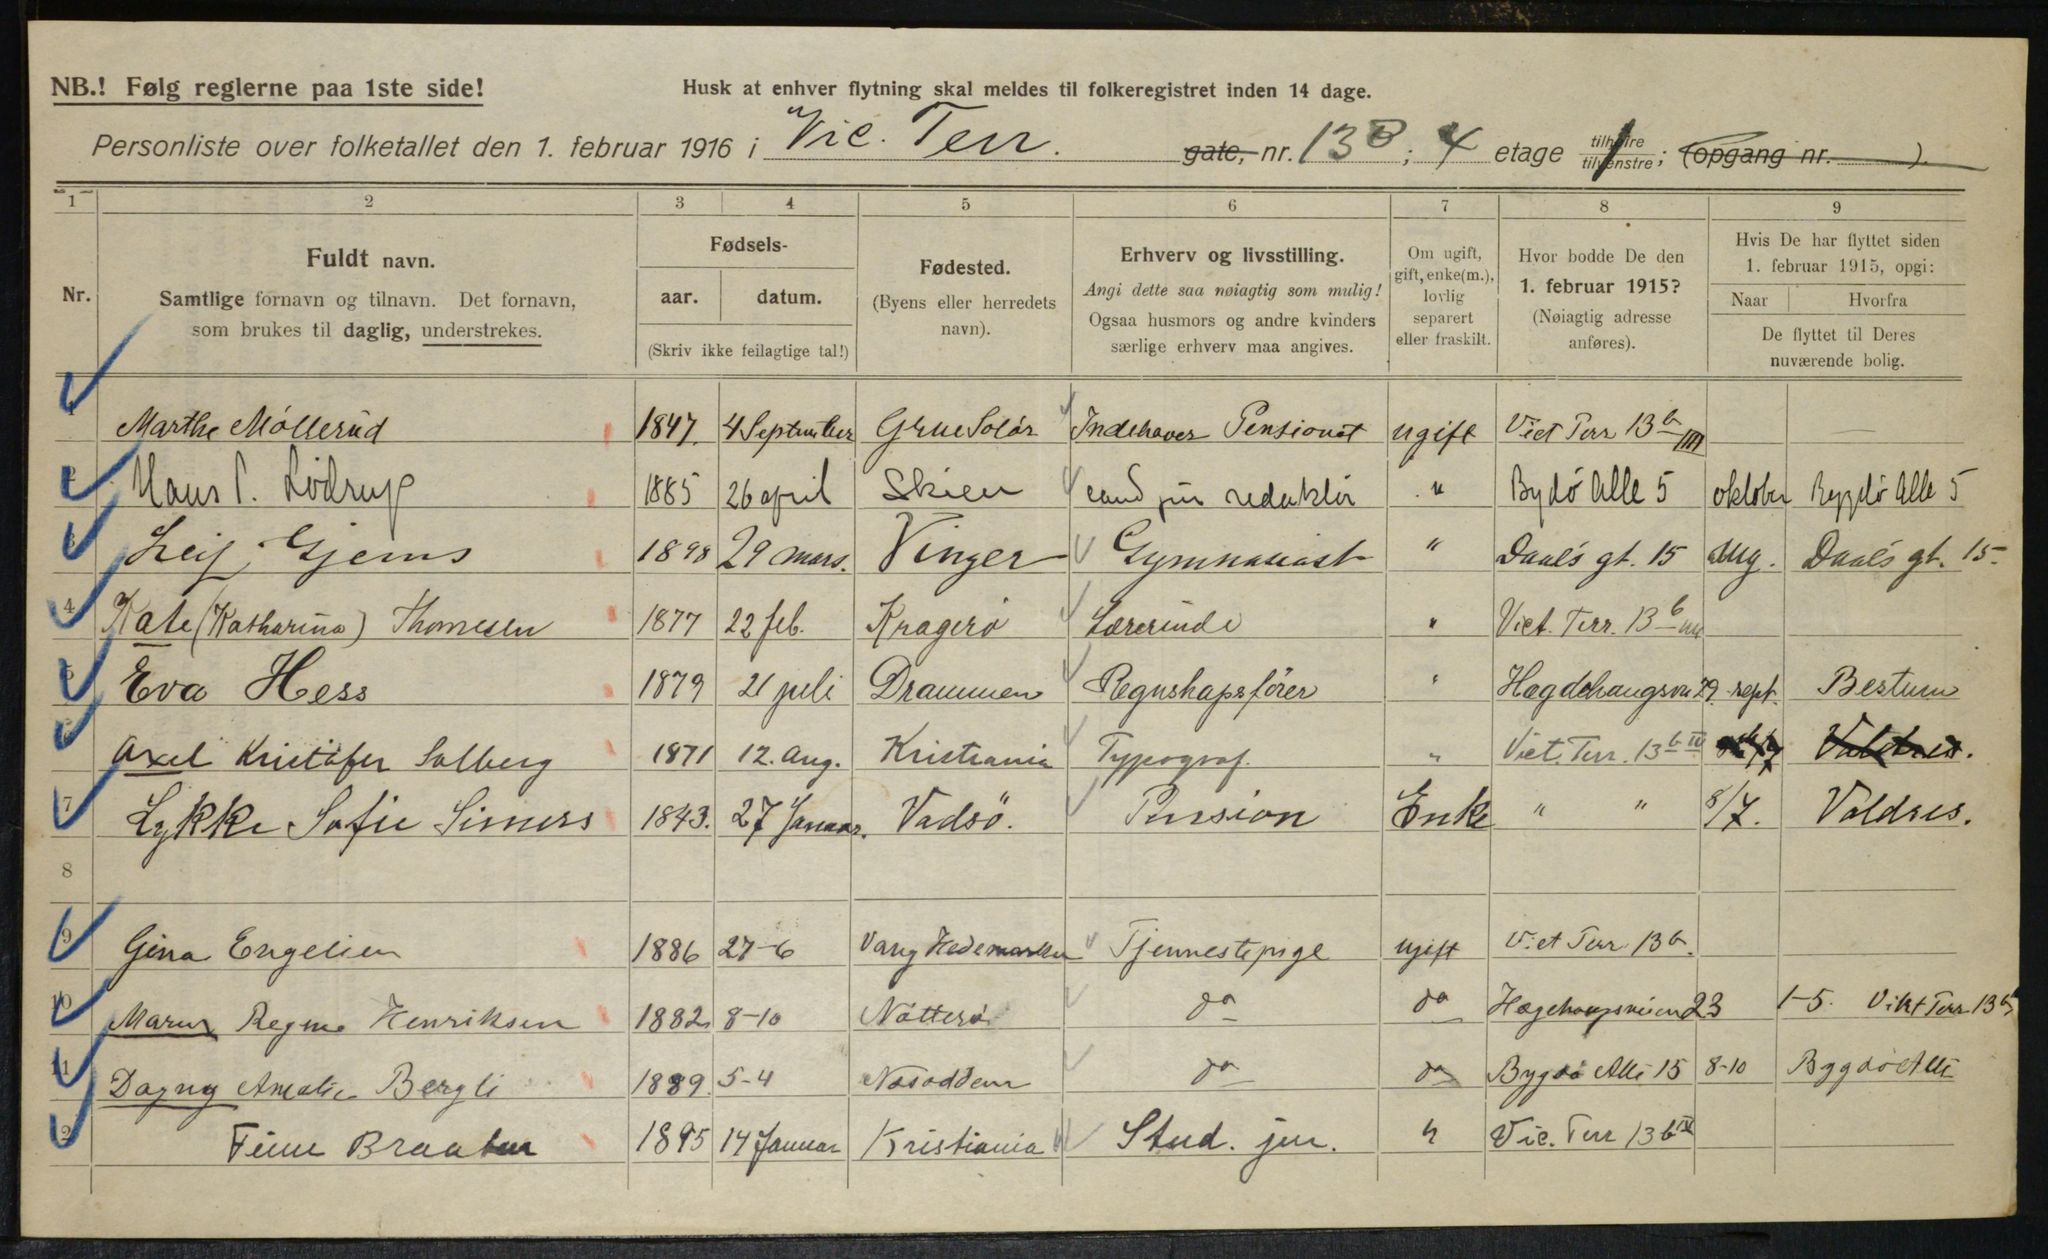 NB.! Følg reglerne paa 1ste side!
Husk at enhver flytning skal meldes til folkeregistret inden 14 dage.
Personliste over folketallet den 1. februar 1916 i Vic. Terr. gate, nr. 13B; 4 etage tilhøire tilvenstre; (opgang nr. ).
1 2 3 4 5 6 7 8 9
Nr.
Fuldt navn.
Samtlige fornavn og tilnavn. Det fornavn,
som brukes til daglig, understrekes.
Fødsels-
aar. datum.
(Skriv ikke feilagtige tal!)
Fødested.
(Byens eller herredets
navn).
Erhverv og livsstilling.
Angi dette saa nøiagtig som mulig!
Ogsaa husmors og andre kvinders
særlige erhverv maa angives.
Om ugift,
gift, enke(m.),
lovlig
separert
eller fraskilt.
Hvor bodde De den
1. februar 1915?
(Nøiagtig adresse
anføres).
Hvis De har flyttet siden
1. februar 1915, opgi:
Naar Hvorfra
De flyttet til Deres
nuværende bolig.
1 Marthe Möllerud 1847. 4 September Grue Solør Indehaver Pensionat ugift Vict Terr 13b III
2 Hans P. Lødrup 1885 26 april Skien cand jur redaktør " Bydø Alle 5 oktober Bygdø Alle 5
3 Leif Gjems 1898 29 mars. Vinger Gymnasiast " Daaes gt. 15 Aug. Daaes gt. 15
4 Kate (Katharina) Thomesen 1877 22 feb. Kragerø Lærerinde " Vict. Terr. 13b
5 Eva Hess 1879 21 juli Drammen Regnskapsfører " Hægdehaugsvn 29. sept. Bestum
6 Axel Kristofer Solberg 1871 12. aug. Kristiania Typograf. " Vict. Terr. 13b IV Valdres.
7 Lykke Sofie Simers 1843. 27 Januar. Vadsö. Pension Enke " " 8/7. Valdres.
8
9 Gina Engelien 1886 27-6 Vang Hedemarken Tjennestepige ugift Vict Terr 13b.
10 Maren Regine Henriksen 1882 8-10 Nøtterø do do Hægehaugsveien 23 1-5. Vikt Terr 13b
11 Dagny Amalie Bergli 1889. 5-4 Nesodden do do Bygdø Alle 15 8-10 Bygdø Alle
12 Finn Braaten 1895 14 Januar Kristiania Stud. jur. " Vic. Terr 13b IV